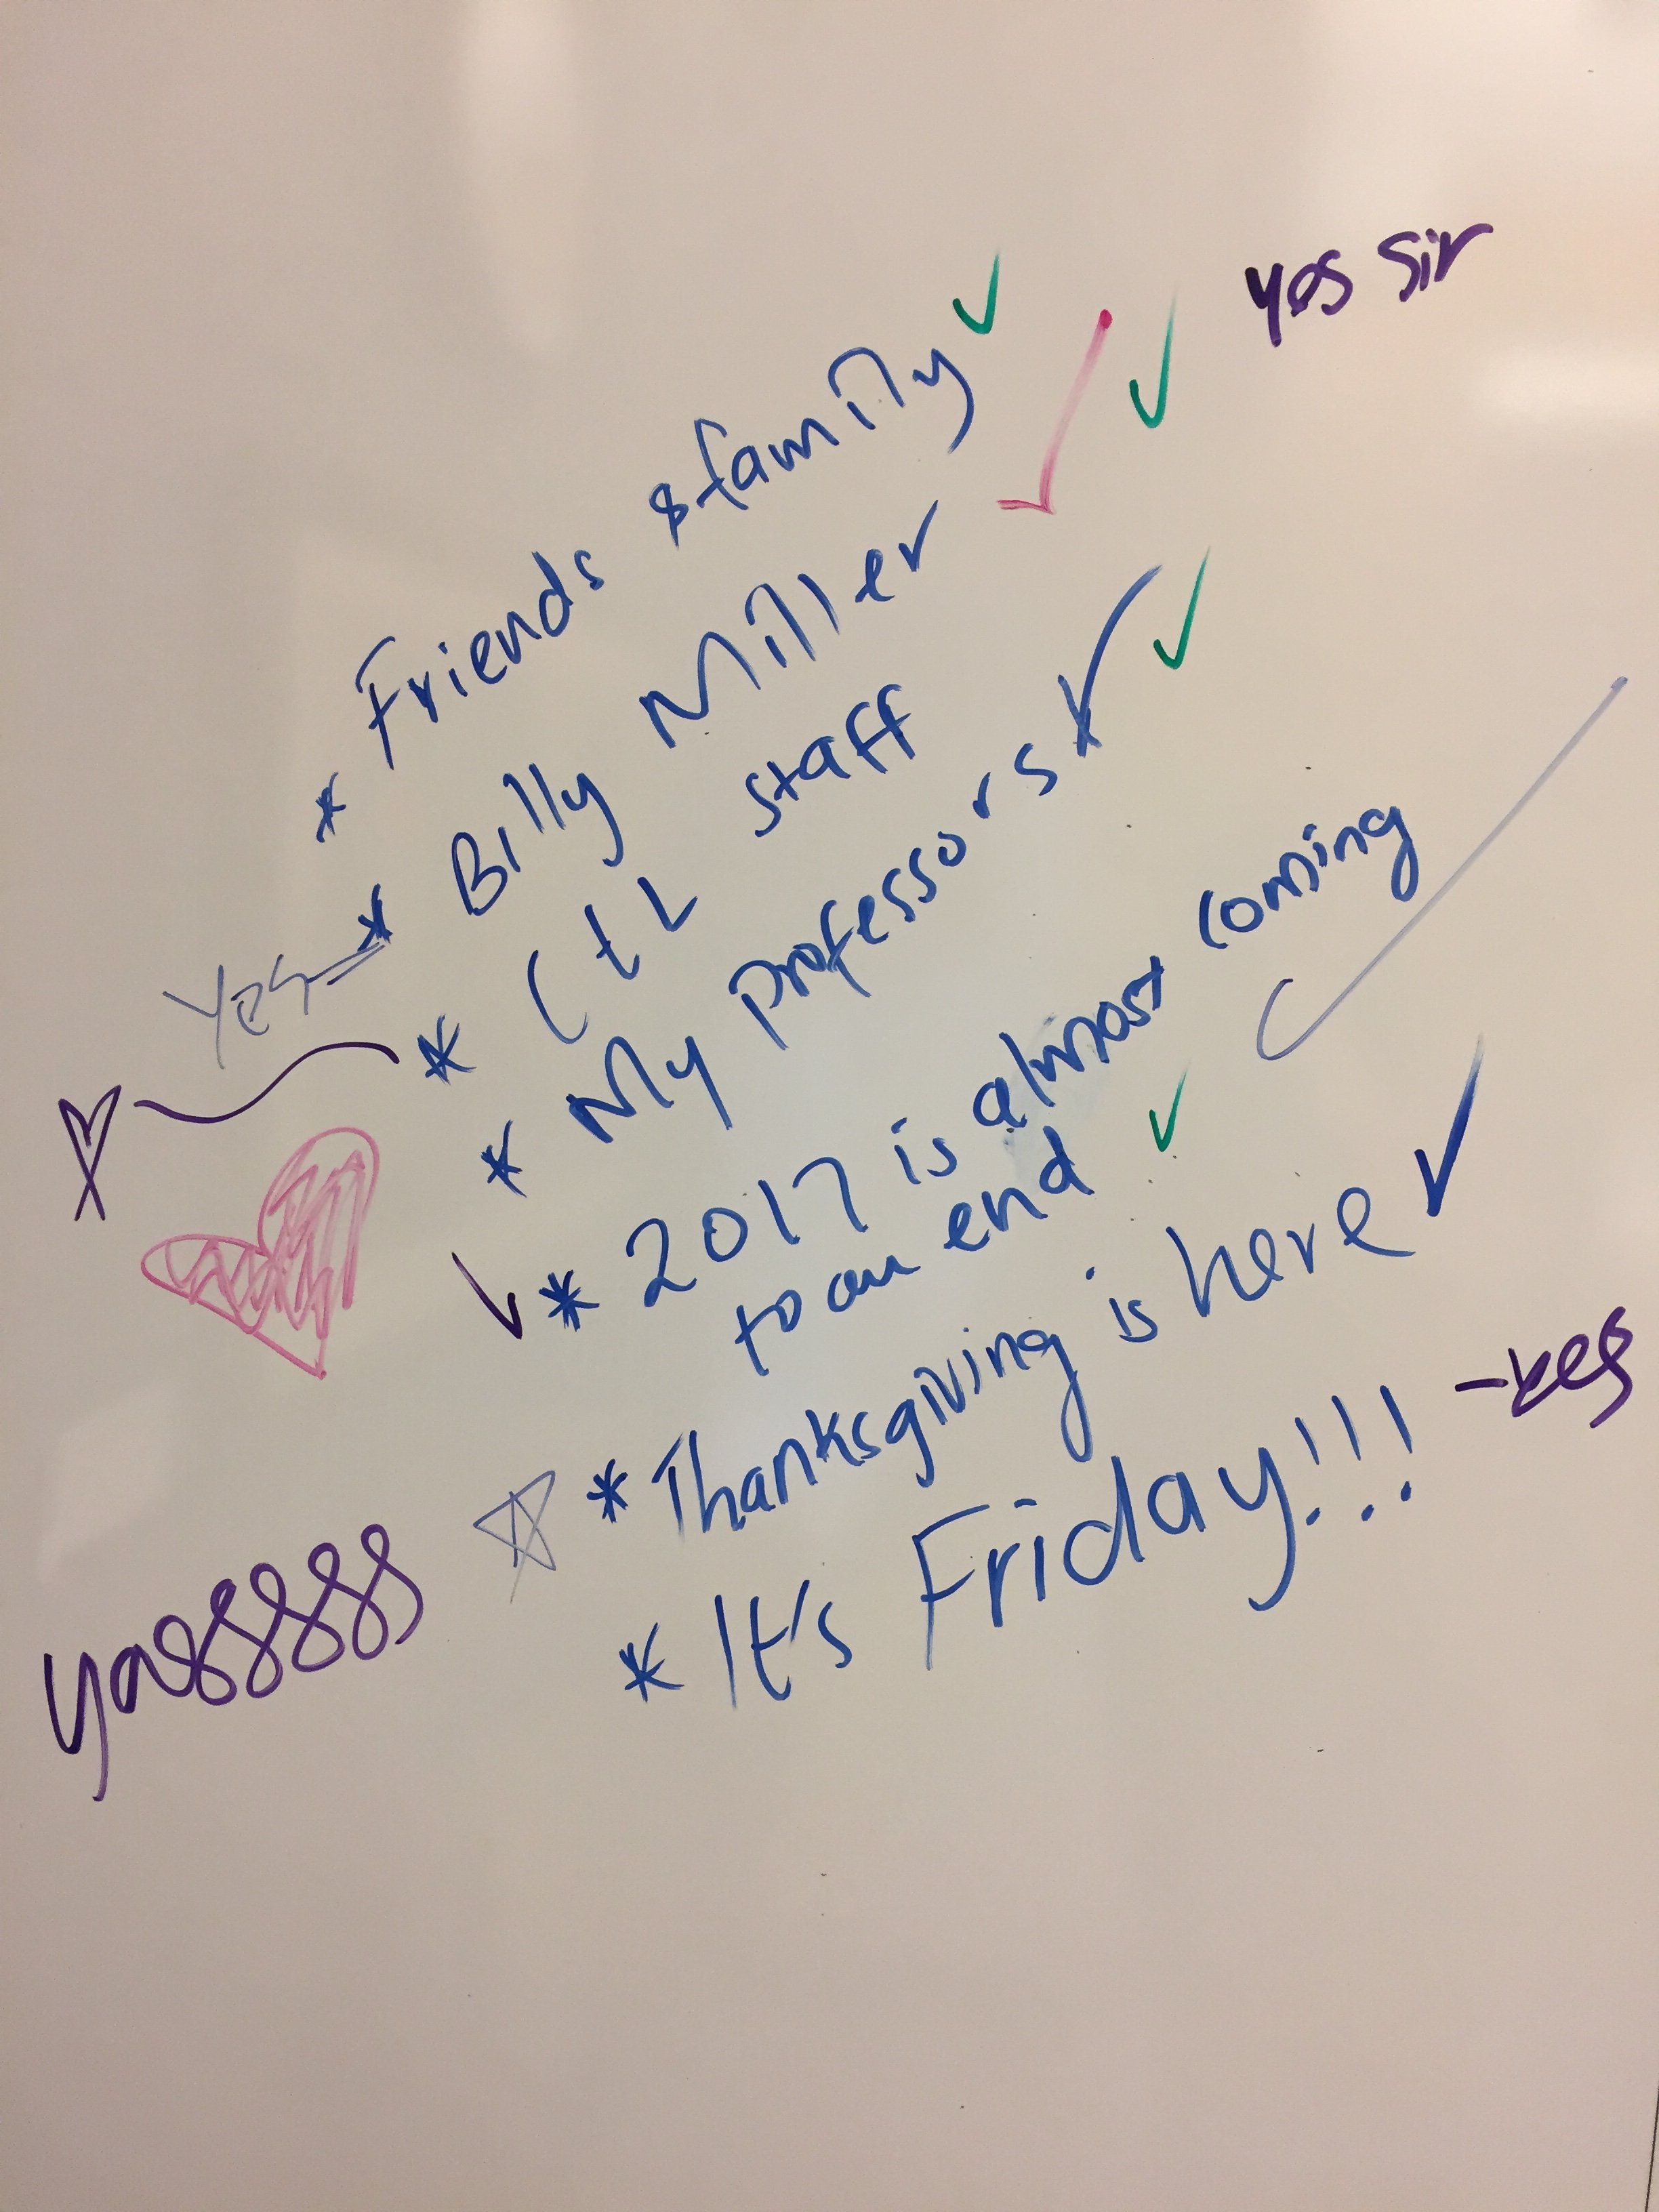 yes sir
* Friends & family ✓
Yes → * Billy Miller ✓ ✓
* CtL staff
* My professors * ✓ ✓
✓ * 2017 is almost coming
to an end ✓
* Thanksgiving is here ✓
yassssss
* It's Friday!!! - yes